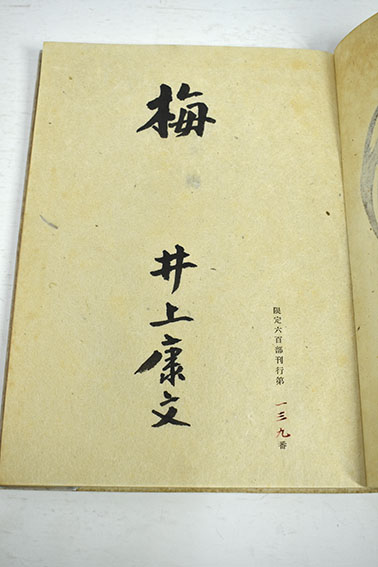 限定六百部刊行第一三九番
梅
井上康文